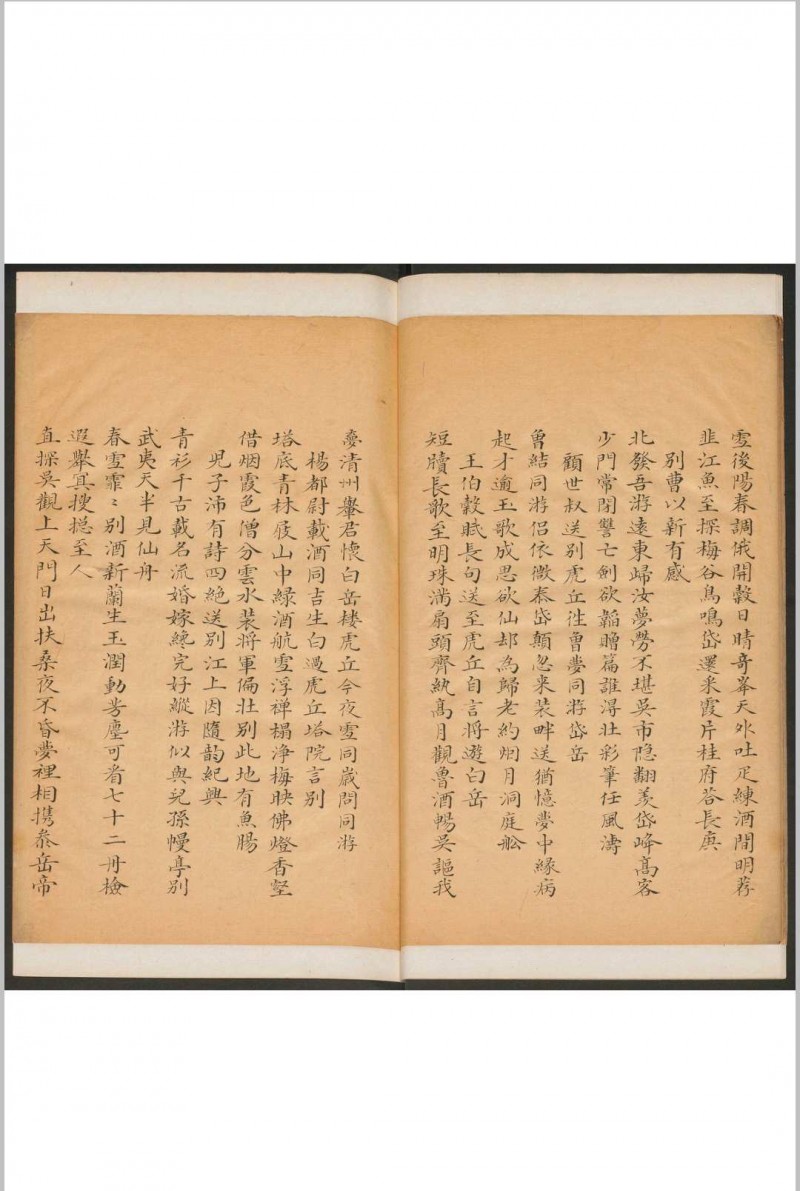 雪後陽春調俄開穀日晴奇峯天外吐疋練酒間明荐
韭江魚至探梅谷鳥鳴岱還釆霞片桂府荅長庚
别曹以新有感
北發吾游遠東歸汝夢勞不堪吳市隐翻羨岱峰高客
少門常閉讐亡劍欲韜贈篇誰淂壮彩筆任風濤
顧世叔送别虎丘徃曽夢同游岱岳
曽結同游侣依微泰岱顛忽来装畔送猶憶夢中緣病
起才逾玉歌成思欲仙却為歸老約烟月洞庭舩
王伯穀贶長句送至虎丘自言将遊白岳
短牘長歌至明珠満扇頭齊紈髙月觀魯酒暢吳謳我
夣清州舉君懐白岳棲虎丘今夜雪同歳問同游
楊都尉載酒同吉生白過虎丘塔院言别
塔底青林屐山中緑酒航雪浮禅榻净梅映佛燈香壑
借烟霞色僧分雲水装将軍偏壮别此地有魚腸
児子沛有詩四絶送别江上因隨韵紀興
青衫千古載名流婚嫁纔完好縱游似與兒孫幔亭别
武夷天半見仙舟
春雪霏〻别酒新蘭生玉潤動芳塵可看七十二冊檢
遐舉冥搜揔至人
直探吳觀上天門日出扶桑夜不昏夢裡相携泰岳帝